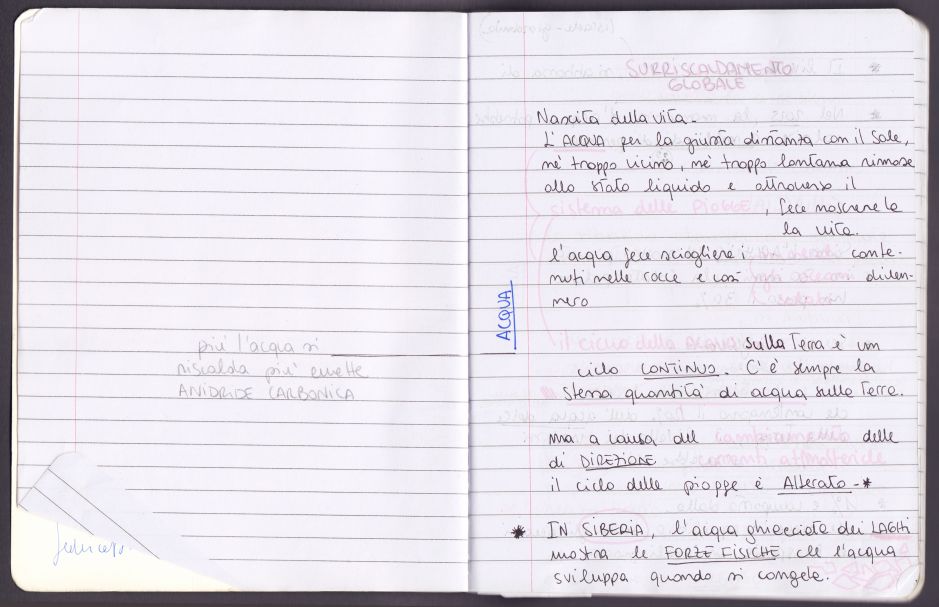 più l'acqua si
riscalda più emette
ANIDRIDE CARBONICA
SURRISCALDAMENTO
GLOBALE
Nascita della vita.
L'ACQUA per la giusta distanza con il Sole,
né troppo vicino, né troppo lontana rimase
allo stato liquido e attraverso il
sistema delle PIOGGE, fece nascere la
la vita.
l'acqua fece sciogliere i conte-
nuti nelle rocce e così diven-
nero
ACQUA
il ciclo della ACQUA sulla Terra è un
ciclo CONTINUO. C'è sempre la
stessa quantità di acqua sulla Terra.
ma a causa del cambiamento delle
di DIREZIONE correnti atmosferiche
il ciclo delle piogge è Alterato -*
* IN SIBERIA, l'acqua ghiacciata dei LAGHI
mostra le FORZE FISICHE che l'acqua
sviluppa quando si congela.